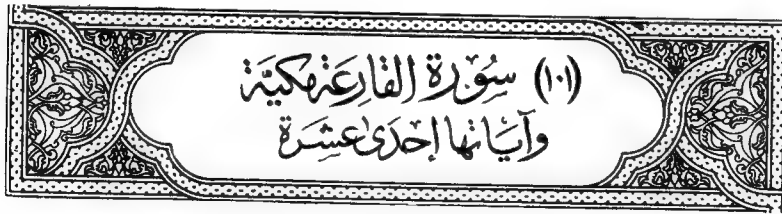 (١٠١) سُورَة القارِعَة مكيَّة
وآيَاتها إحْدَى عَشِرَة